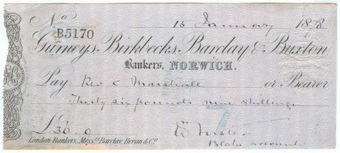 No
B5170
16 January 1878
Gurneys, Birkbecks, Barclay & Buxton
Bankers, NORWICH.
Pay Rev. C Marshall or Bearer
Thirty six pounds nine shillings
£36.9
London Bankers, Messrs Barclay, Bevan & Co.